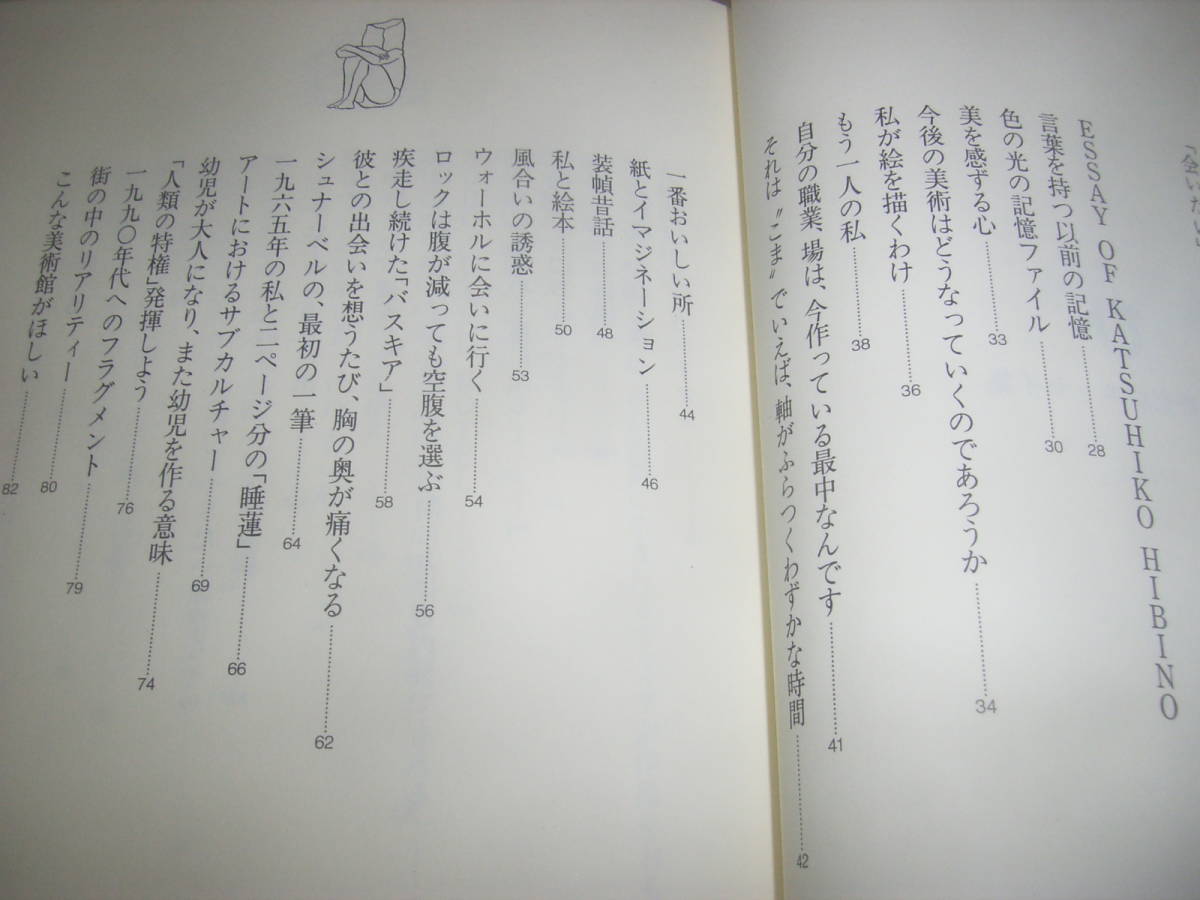 「会いたい
ESSAY OF KATSUHIKO HIBINO
言葉を持つ以前の記憶………28
色の光の記憶ファイル………30
美を感ずる心………33
今後の美術はどうなっていくのであろうか………34
私が絵を描くわけ………36
もう一人の私………38
自分の職業、場は、今作っている最中なんです………41
それは〝こま〟でいえば、軸がふらつくわずかな時間………42
一番おいしい所………44
紙とイマジネーション………46
装幀昔話………48
私と絵本………50
風合いの誘惑………53
ウォーホルに会いに行く………54
ロックは腹が減っても空腹を選ぶ………56
疾走し続けた「バスキア」………58
彼との出会いを想うたび、胸の奥が痛くなる………62
シュナーベルの、最初の一筆………64
一九六五年の私と二ページ分の「睡蓮」………66
アートにおけるサブカルチャー………69
幼児が大人になり、また幼児を作る意味………74
「人類の特権」発揮しよう………76
一九九〇年代へのフラグメント………79
街の中のリアリティー………80
こんな美術館がほしい………82